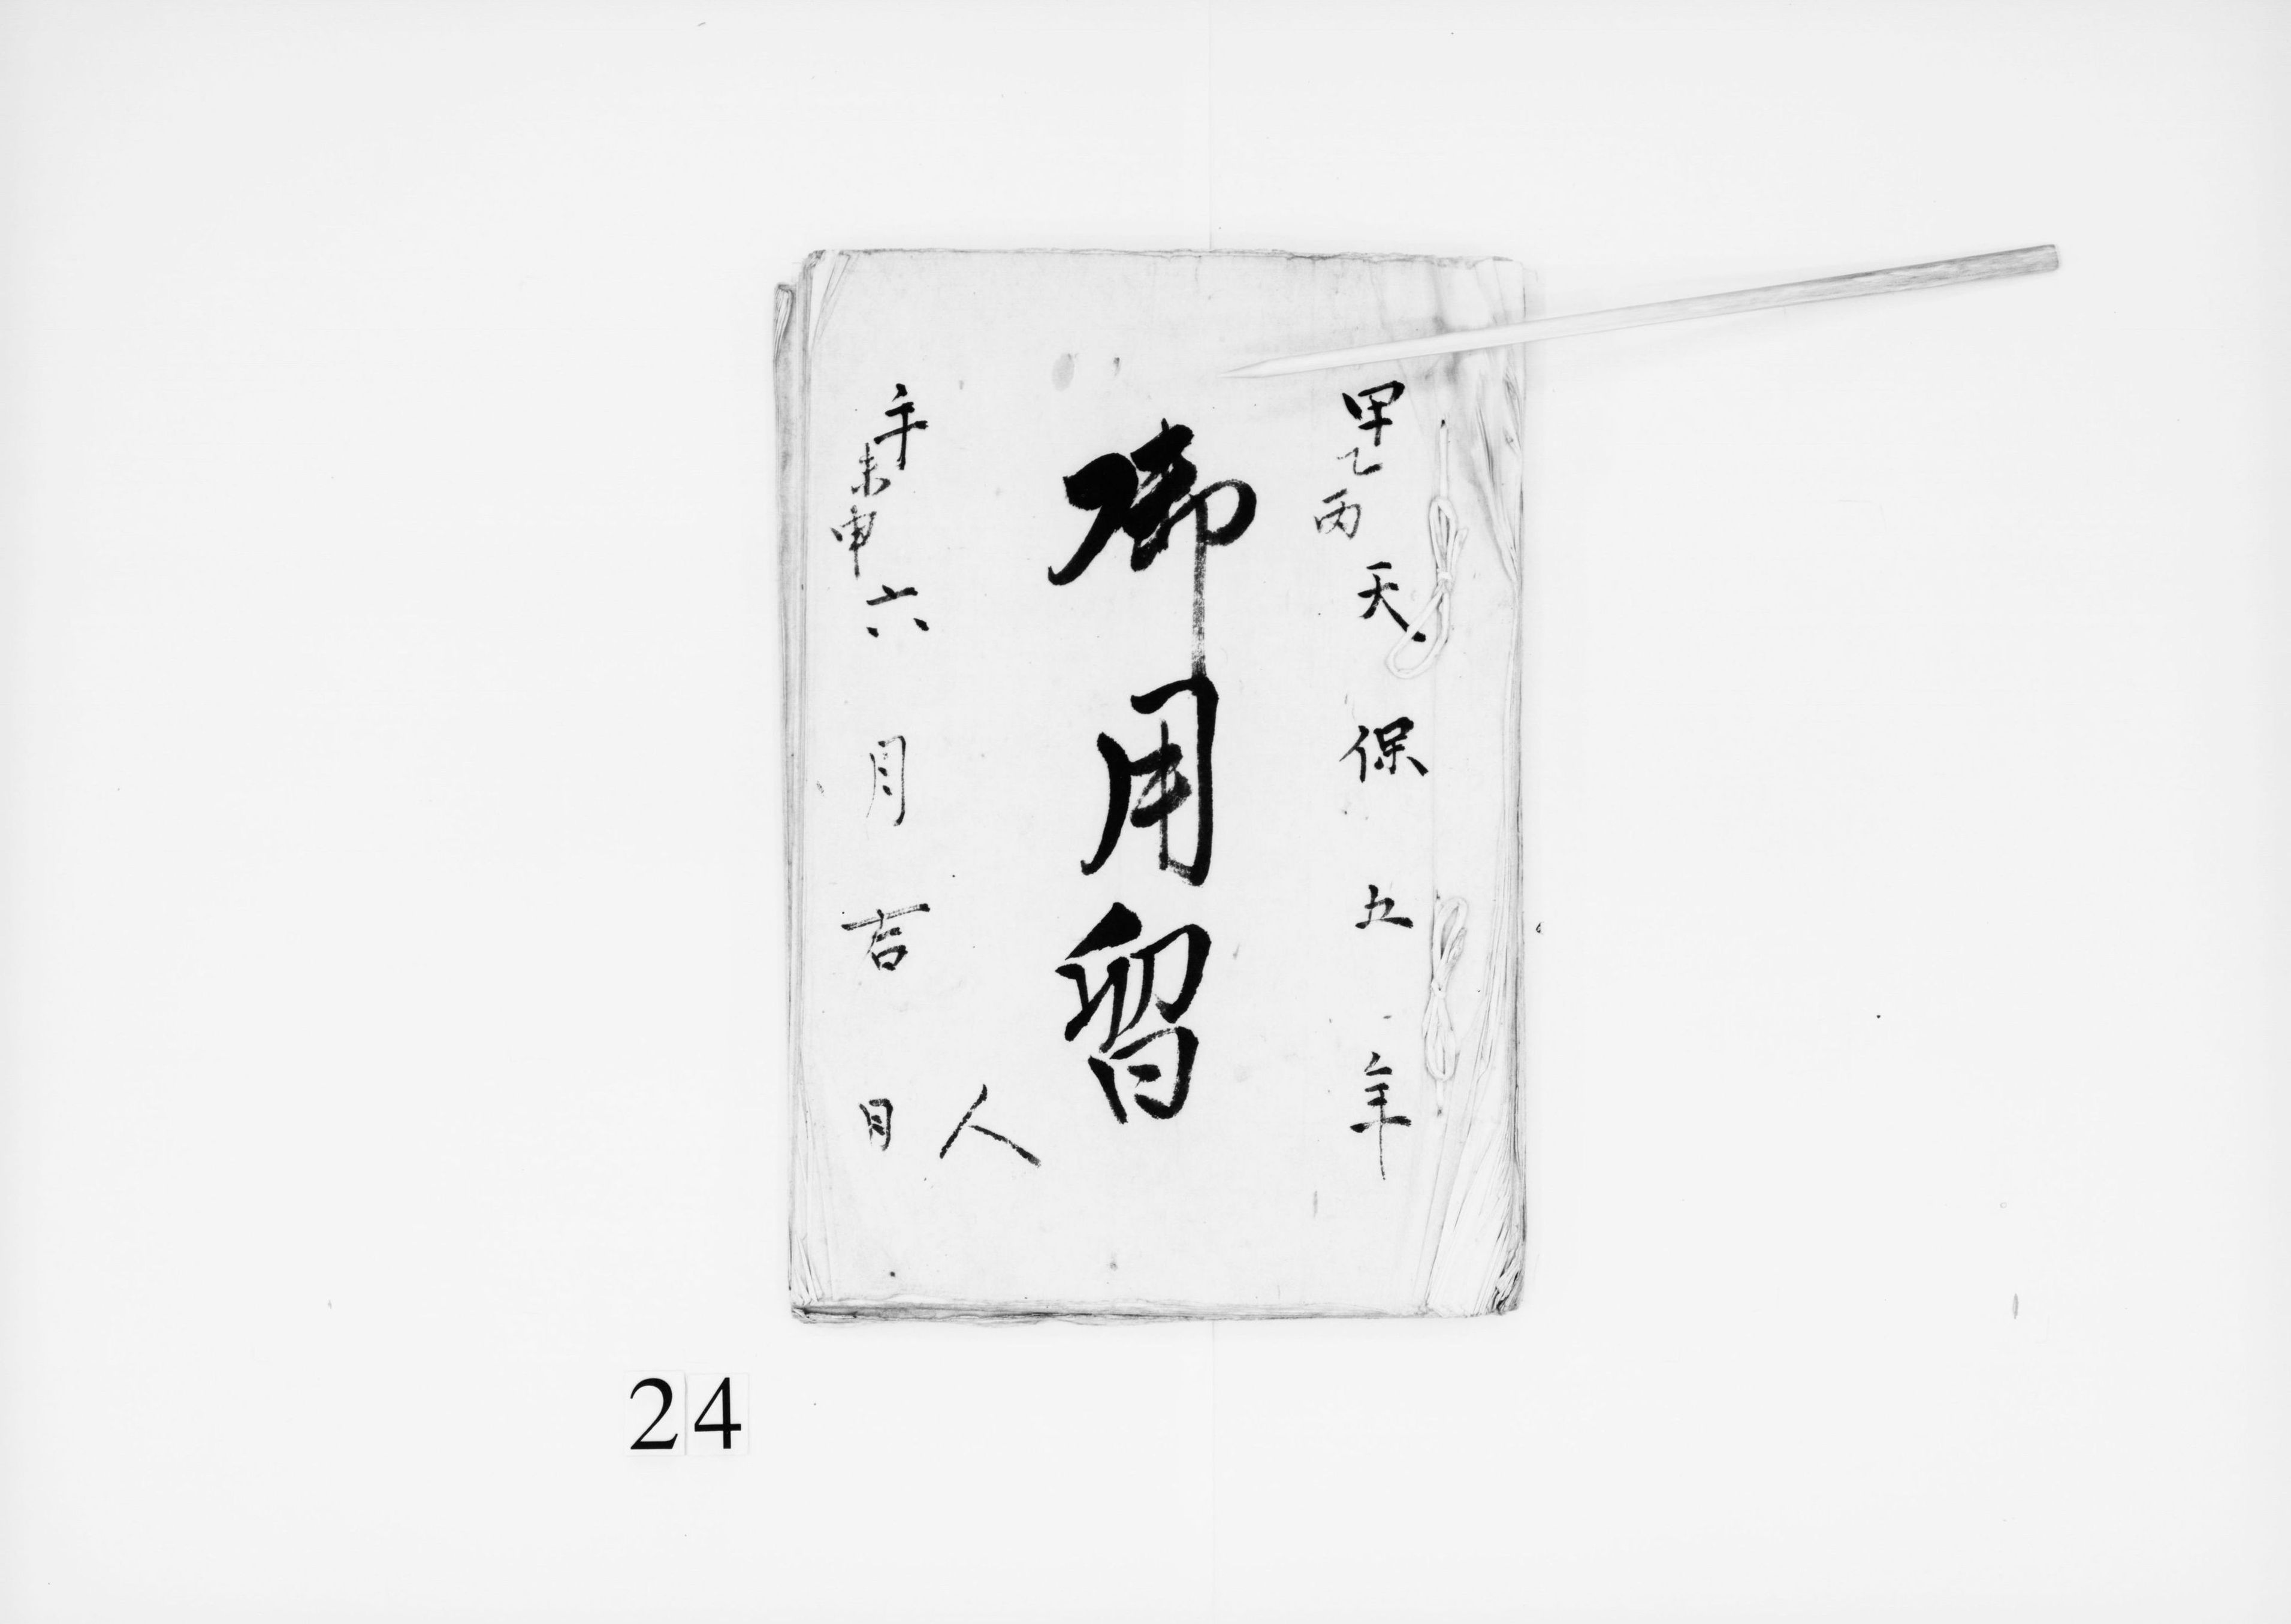 甲乙丙天保五年
御用留
人
午未申六月吉日
24